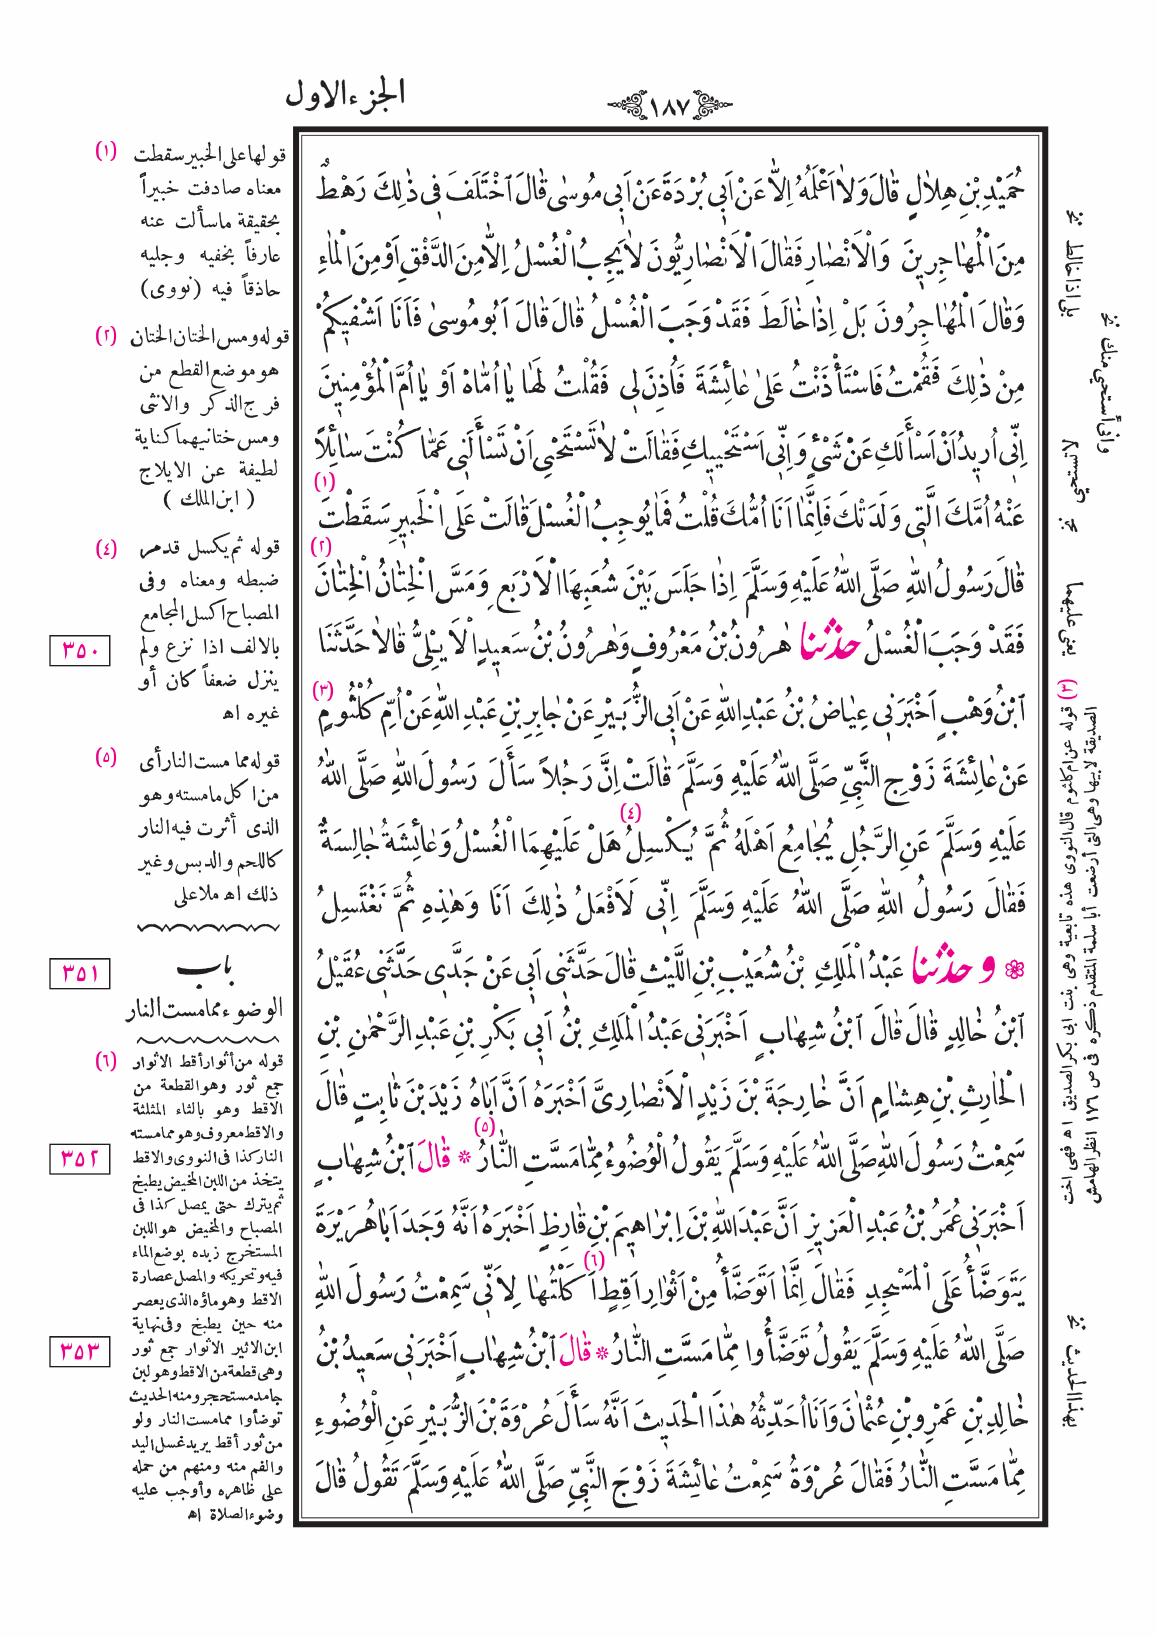 الجزء الاول
١٨٧
حُمَيْدِ بْنِ هِلَالٍ قَالَ وَلَا اَعْلَمُهُ اِلَّا عَنْ اَبِى بُرْدَةَ عَنْ اَبِى مُوسٰى قَالَ اَخْتَلَفَ فِى ذٰلِكَ رَهْطٌ
مِنَ الْمُهَاجِرِينَ وَالْاَنْصَارِ فَقَالَ الْاَنْصَارِيُّونَ لَا يَجِبُ الْغُسْلُ اِلَّا مِنَ الدَّفْقِ اَوْ مِنَ الْمَاءِ
وَقَالَ الْمُهَاجِرُونَ بَلْ اِذَا خَالَطَ فَقَدْ وَجَبَ الْغُسْلُ قَالَ قَالَ اَبُو مُوسٰى فَاَنَا اَشْفِيكُمْ
مِنْ ذٰلِكَ فَقُمْتُ فَاسْتَأْذَنْتُ عَلٰى عَائِشَةَ فَاُذِنَ لِى فَقُلْتُ لَهَا يَا اُمَّاهْ اَوْ يَا اُمَّ الْمُؤْمِنِينَ
اِنِّى اُرِيدُ اَنْ اَسْأَلَكِ عَنْ شَىْءٍ وَ اِنِّى اَسْتَحْيِيكِ فَقَالَتْ لَا تَسْتَحْيِى اَنْ تَسْأَلَنِى عَمَّا كُنْتَ سَائِلاً
عَنْهُ اُمَّكَ الَّتِى وَلَدَتْكَ فَاِنَّمَا اَنَا اُمُّكَ قُلْتُ فَمَا يُوجِبُ الْغُسْلَ قَالَتْ عَلَى الْخَبِيرِ سَقَطْتَ (١)
قَالَ رَسُولُ اللهِ صَلَّى اللهُ عَلَيْهِ وَسَلَّمَ اِذَا جَلَسَ بَيْنَ شُعَبِهَا الْاَرْبَعِ وَمَسَّ الْخِتَانُ الْخِتَانَ (٢)
فَقَدْ وَجَبَ الْغُسْلُ حدثنا هٰرُونُ بْنُ مَعْرُوفٍ وَهٰرُونُ بْنُ سَعِيدٍ الْاَيْلِىُّ قَالَا حَدَّثَنَا
اَبْنُ وَهْبٍ اَخْبَرَنِى عِيَاضُ بْنُ عَبْدِ اللهِ عَنْ اَبِى الزُّبَيْرِ عَنْ جَابِرِ بْنِ عَبْدِ اللهِ عَنْ اُمِّ كُلْثُومٍ (٣)
عَنْ عَائِشَةَ زَوْجِ النَّبِىِّ صَلَّى اللهُ عَلَيْهِ وَسَلَّمَ قَالَتْ اِنَّ رَجُلاً سَأَلَ رَسُولَ اللهِ صَلَّى اللهُ
عَلَيْهِ وَسَلَّمَ عَنِ الرَّجُلِ يُجَامِعُ اَهْلَهُ ثُمَّ يُكْسِلُ (٤) هَلْ عَلَيْهِمَا الْغُسْلُ وَعَائِشَةُ جَالِسَةٌ
فَقَالَ رَسُولُ اللهِ صَلَّى اللهُ عَلَيْهِ وَسَلَّمَ اِنِّى لَاَفْعَلُ ذٰلِكَ اَنَا وَهٰذِهِ ثُمَّ نَغْتَسِلُ
و حدثنا عَبْدُ الْمَلِكِ بْنُ شُعَيْبِ بْنِ اللَّيْثِ قَالَ حَدَّثَنِى اَبِى عَنْ جَدِّى حَدَّثَنِى عُقَيْلُ
اَبْنُ خَالِدٍ قَالَ قَالَ اَبْنُ شِهَابٍ اَخْبَرَنِى عَبْدُ الْمَلِكِ بْنُ اَبِى بَكْرِ بْنِ عَبْدِ الرَّحْمٰنِ بْنِ
الْحَارِثِ بْنِ هِشَامٍ اَنَّ خَارِجَةَ بْنَ زَيْدٍ الْاَنْصَارِىَّ اَخْبَرَهُ اَنَّ اَبَاهُ زَيْدَ بْنَ ثَابِتٍ قَالَ
سَمِعْتُ رَسُولَ اللهِ صَلَّى اللهُ عَلَيْهِ وَسَلَّمَ يَقُولُ الْوُضُوءُ مِمَّا مَسَّتِ النَّارُ (٥) * قَالَ اَبْنُ شِهَابٍ
اَخْبَرَنِى عُمَرُ بْنُ عَبْدِ الْعَزِيزِ اَنَّ عَبْدَ اللهِ بْنَ اِبْرَاهِيمَ بْنِ قَارِظٍ اَخْبَرَهُ اَنَّهُ وَجَدَ اَبَا هُرَيْرَةَ
يَتَوَضَّأُ عَلَى الْمَسْجِدِ فَقَالَ اِنَّمَا اَتَوَضَّأُ مِنْ اَثْوَارِ اَقِطٍ (٦) اَكَلْتُهَا لِاَنِّى سَمِعْتُ رَسُولَ اللهِ
صَلَّى اللهُ عَلَيْهِ وَسَلَّمَ يَقُولُ تَوَضَّأُوا مِمَّا مَسَّتِ النَّارُ * قَالَ اَبْنُ شِهَابٍ اَخْبَرَنِى سَعِيدُ بْنُ
خَالِدِ بْنِ عَمْرِو بْنِ عُثْمَانَ وَاَنَا اُحَدِّثُهُ هٰذَا الْحَدِيثَ اَنَّهُ سَأَلَ عُرْوَةَ بْنَ الزُّبَيْرِ عَنِ الْوُضُوءِ
مِمَّا مَسَّتِ النَّارُ فَقَالَ عُرْوَةُ سَمِعْتُ عَائِشَةَ زَوْجَ النَّبِىِّ صَلَّى اللهُ عَلَيْهِ وَسَلَّمَ تَقُولُ قَالَ
(١) قولها على الخبير سقطت
معناه صادفت خبيراً
بحقيقة ما سألت عنه
عارفاً بخفيه وجليه
حاذقاً فيه (نووى)
(٢) قوله ومس الختان الختان
هو موضع القطع من
فرج الذكر والانثى
ومس ختانيهما كناية
لطيفة عن الايلاج
( ابن الملك )
(٤) قوله ثم يكسل قدمر
ضبطه ومعناه وفى
المصباح اكسل المجامع
بالالف اذا نزع ولم
ينزل ضعفاً كان أو
غيره اه
٣٥٠
(٥) قوله مما مست النار أى
من اكل ما مسته وهو
الذى أثرت فيه النار
كاللحم والدبس وغير
ذلك اه ملا على
٣٥١
باب
الوضوء مما مست النار
(٦) قوله من أثوار أقط الاثوار
جمع ثور وهو القطعة من
الاقط وهو بالثاء المثلثة
والاقط معروف وهو مما مسته
النار كذا فى النووى والاقط
يتخذ من اللبن المخيض يطبخ
ثم يترك حتى يمصل كذا فى
المصباح والمخيض هو اللبن
المستخرج زبده بوضع الماء
فيه وتحريكه والمصل عصارة
الاقط وهو ماؤه الذى يعصر
منه حين يطبخ وفى نهاية
ابن الاثير الاثوار جمع ثور
وهى قطعة من الاقط وهو لبن
جامد مستحجر ومنه الحديث
توضأوا مما مست النار ولو
من ثور أقط يريد غسل اليد
والفم منه ومنهم من حمله
على ظاهره وأوجب عليه
وضوء الصلاة اه
٣٥٢
٣٥٣
بلى اذا خالط نخ
وانى أستحيى منك نخ
لا تستحيى نخ
يعنى عليهما
(٣) قوله عن ام كلثوم قال النووى هذه تابعية وهى بنت ابى بكر الصديق اه فهى اخت
الصديقة لابيها وهى التى أرضعت أبا سلمة المتقدم ذكره فى ص ١٧٦ انظر الهامش
بهذا الحديث نخ